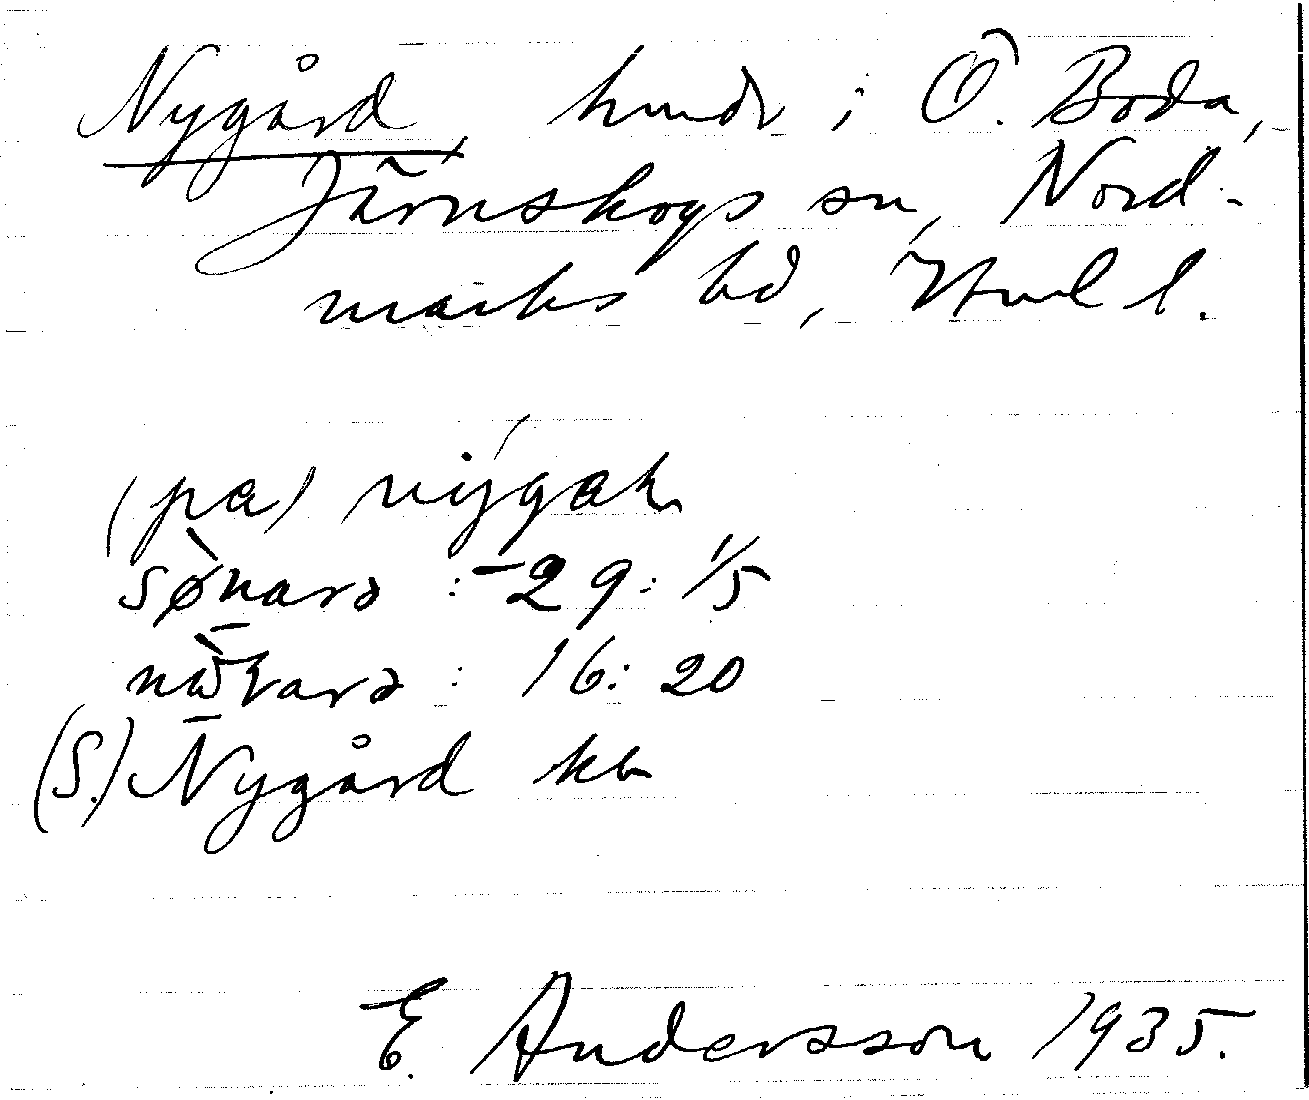 Nygård, hmdr i Ö. Boda,
Järnskogs sn, Nord-
marks hd, Vrml l.
(pa) nýgaḷ
sø̀narə : -29: 1/5
nòḷarə : 16: 20
(S.) Nygård kb
E. Andersson 1935.